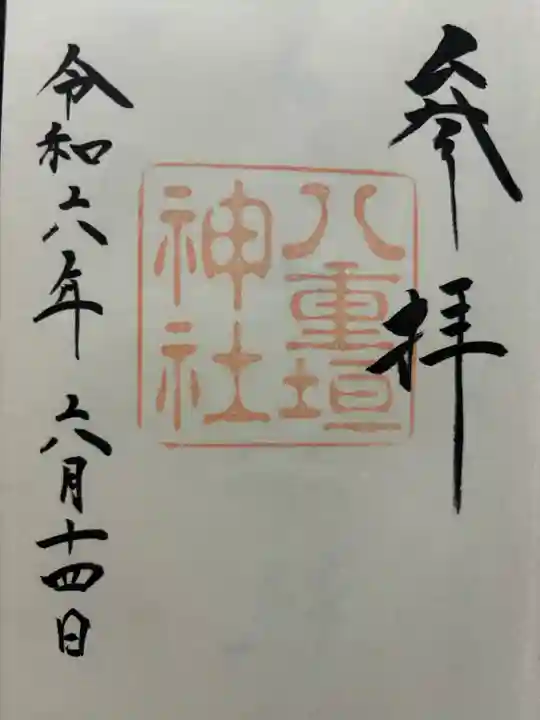 参拝
八重垣
神社
令和六年六月十四日